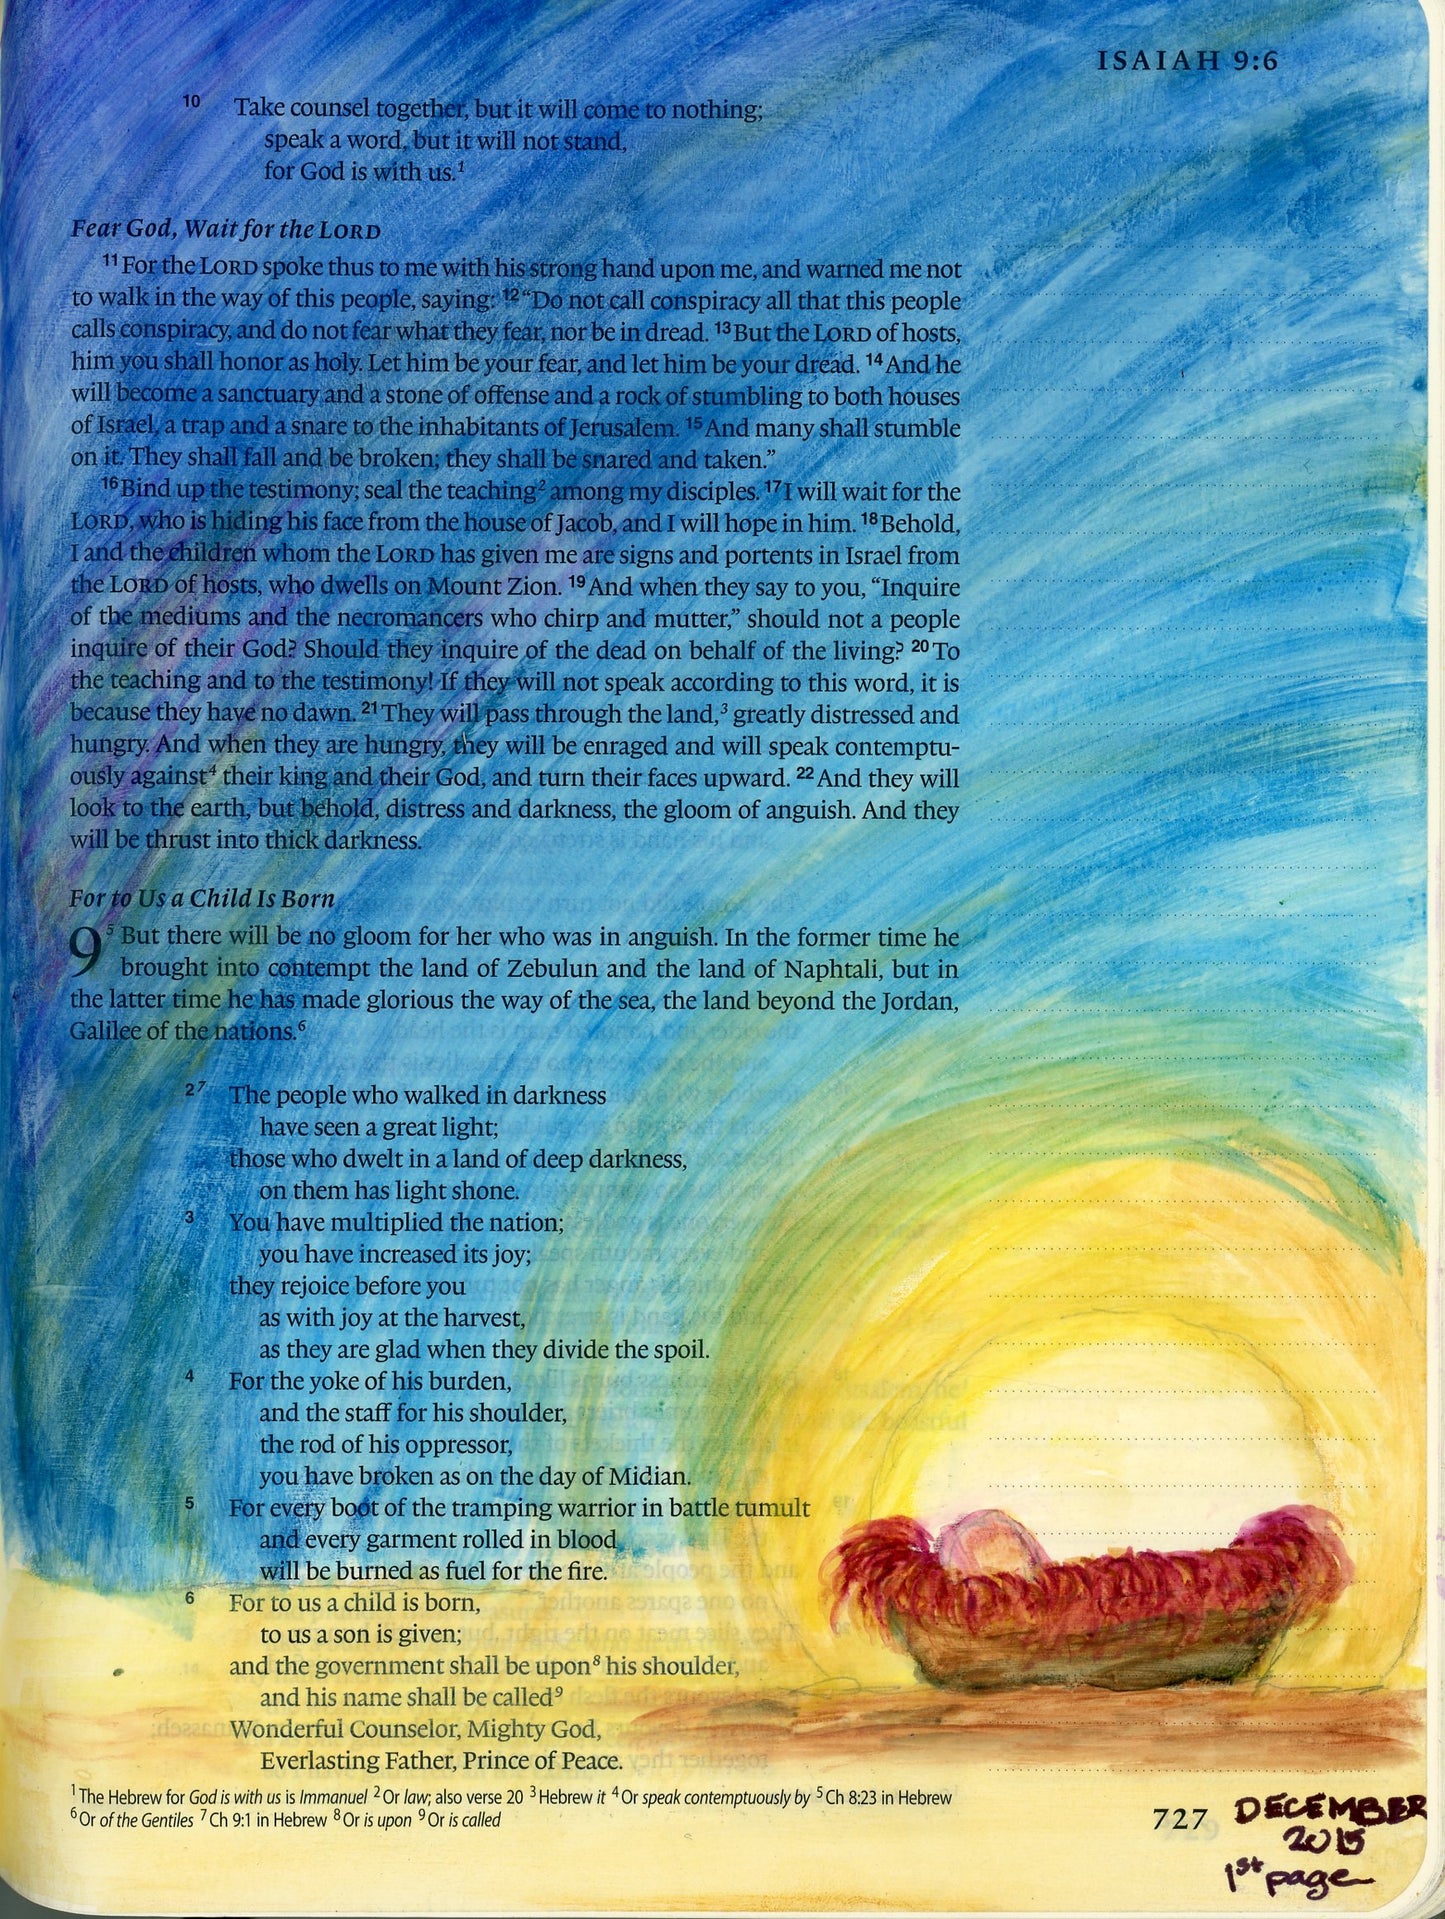 ISAIAH 9:6
10 Take counsel together, but it will come to nothing;
speak a word, but it will not stand,
for God is with us.1
Fear God, Wait for the LORD
11 For the LORD spoke thus to me with his strong hand upon me, and warned me not
to walk in the way of this people, saying: 12 “Do not call conspiracy all that this people
calls conspiracy, and do not fear what they fear, nor be in dread. 13 But the LORD of hosts,
him you shall honor as holy. Let him be your fear, and let him be your dread. 14 And he
will become a sanctuary and a stone of offense and a rock of stumbling to both houses
of Israel, a trap and a snare to the inhabitants of Jerusalem. 15 And many shall stumble
on it. They shall fall and be broken; they shall be snared and taken.”
16 Bind up the testimony; seal the teaching2 among my disciples. 17 I will wait for the
LORD, who is hiding his face from the house of Jacob, and I will hope in him. 18 Behold,
I and the children whom the LORD has given me are signs and portents in Israel from
the LORD of hosts, who dwells on Mount Zion. 19 And when they say to you, “Inquire
of the mediums and the necromancers who chirp and mutter,” should not a people
inquire of their God? Should they inquire of the dead on behalf of the living? 20 To
the teaching and to the testimony! If they will not speak according to this word, it is
because they have no dawn. 21 They will pass through the land,3 greatly distressed and
hungry. And when they are hungry, they will be enraged and will speak contemptu-
ously against4 their king and their God, and turn their faces upward. 22 And they will
look to the earth, but behold, distress and darkness, the gloom of anguish. And they
will be thrust into thick darkness.
For to Us a Child Is Born
9 5 But there will be no gloom for her who was in anguish. In the former time he
brought into contempt the land of Zebulun and the land of Naphtali, but in
the latter time he has made glorious the way of the sea, the land beyond the Jordan,
Galilee of the nations.6
2 7 The people who walked in darkness
have seen a great light;
those who dwelt in a land of deep darkness,
on them has light shone.
3 You have multiplied the nation;
you have increased its joy;
they rejoice before you
as with joy at the harvest,
as they are glad when they divide the spoil.
4 For the yoke of his burden,
and the staff for his shoulder,
the rod of his oppressor,
you have broken as on the day of Midian.
5 For every boot of the tramping warrior in battle tumult
and every garment rolled in blood
will be burned as fuel for the fire.
6 For to us a child is born,
to us a son is given;
and the government shall be upon8 his shoulder,
and his name shall be called9
Wonderful Counselor, Mighty God,
Everlasting Father, Prince of Peace.
1 The Hebrew for God is with us is Immanuel 2 Or law; also verse 20 3 Hebrew it 4 Or speak contemptuously by 5 Ch 8:23 in Hebrew
6 Or of the Gentiles 7 Ch 9:1 in Hebrew 8 Or is upon 9 Or is called
727
DECEMBER
2015
1st page